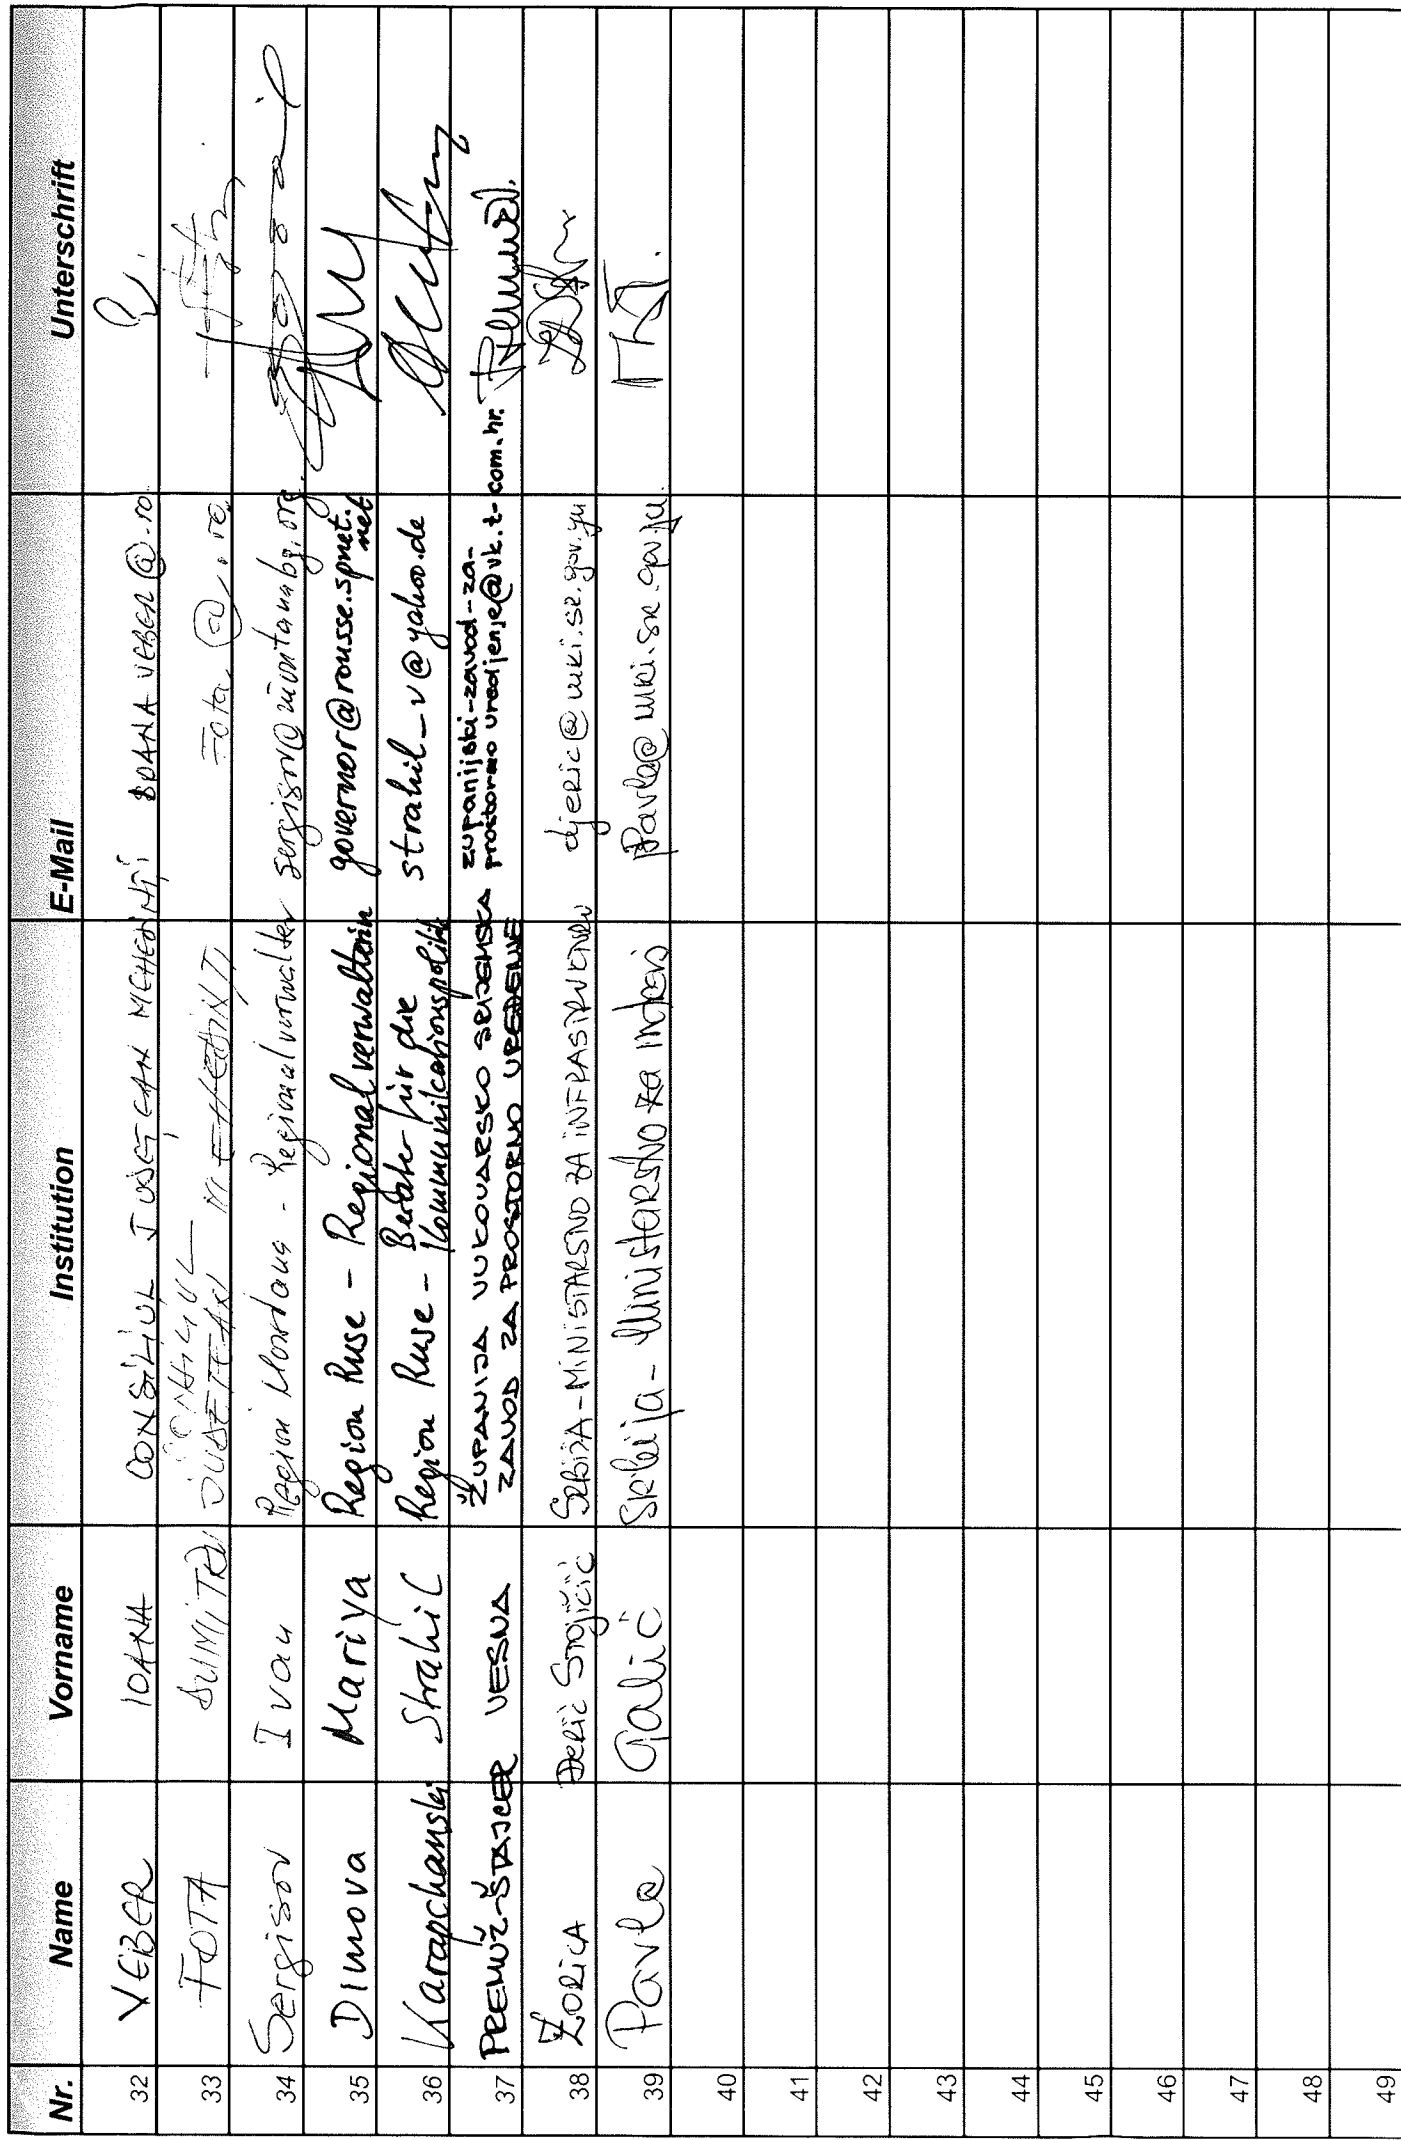 Nr. Name Vorname Institution E-Mail Unterschrift
32 VEBER IOANA CONSILIUL JUDETEAN MEHEDINTI IOANA VEBER@.ro
33 FOTA DUMITRU CONSILIUL
JUDETEAN MEHEDINTI Fota @.ro
34 Sergisov Ivan Region Montana - Regionalverwalter sergisov@montanabg.org.
35 Dimova Mariya Region Ruse - Regionalverwalterin governor@rousse.spnet.
net
36 Karapchanski Strahil Region Ruse - Berater für die
Kommunikationspolitik strahil_v@yahoo.de
37 PREMUŽ-ŠTAJCER VESNA ŽUPANIJA VUKOVARSKO SRIJEMSKA
ZAVOD ZA PROSTORNO UREĐENJE
zupanijski-zavod-za-
prostorno uredjenje@vk.t-com.hr.
38 ZORICA Đerić Stojičić SRBIJA-MINISTARSTVO ZA INFRASTRUKTURU djeric@mki.sr.gov.yu
39 Pavle Galić Srbija - Ministarstvo za infras Pavle@mki.sr.gov.yu.
40
41
42
43
44
45
46
47
48
49